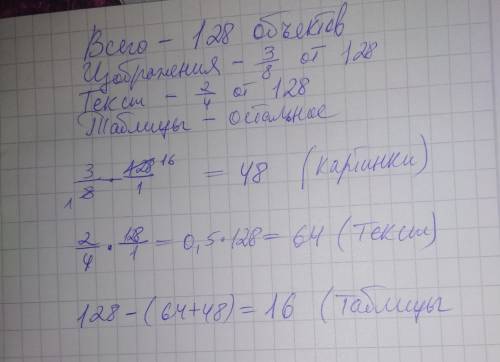 Всего - 128 объектов
Изображения - 3/8 от 128
Текст - 2/4 от 128
Таблицы - остальное
3/8 1 · 128/1 16 = 48 (картинки)
2/4 · 128/1 = 0,5 · 128 = 64 (Текст)
128 - (64+48) = 16 (Таблицы